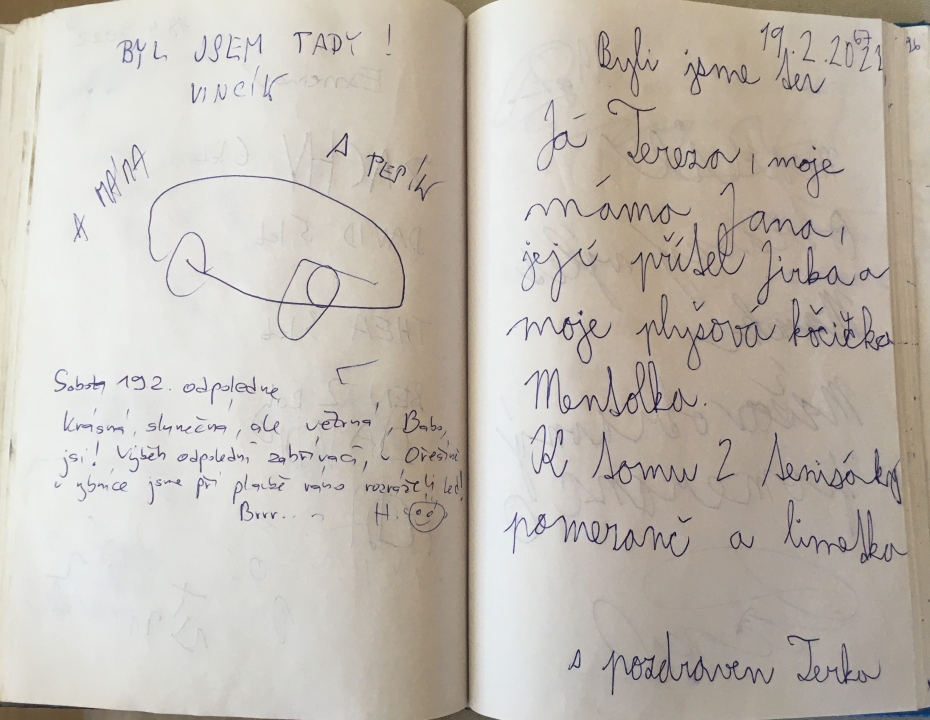 BYL JSEM TADY !
VINCÍK
A MÁMA
A PEPÍK
Sobota 19.2. odpoledne
Krásná, slunečná, ale větrná, Babo,
jsi! Výběh odpolední zahřívací, v Ořešíně
v rybníce jsme při plavbě ráno rozráželi led!
Brrr... H.
67
19.2.2022
Byli jsme ter
Já Tereza, moje
máma Jana,
její přítel Jirka a
moje plyšová kočička
Mentolka.
K tomu 2 tenisáky
pomeranč a limetka
s pozdraven Terka